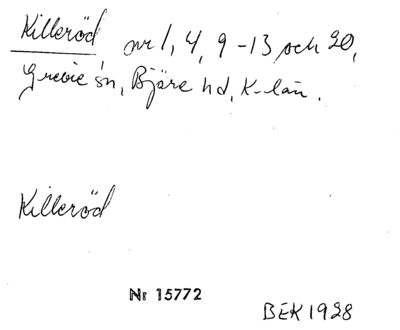 Killeröd nr 1, 4, 9-13 och 20,
Grevie sn, Bjäre hd, K-län.
Killeröd
Nr 15772
BEK 1928